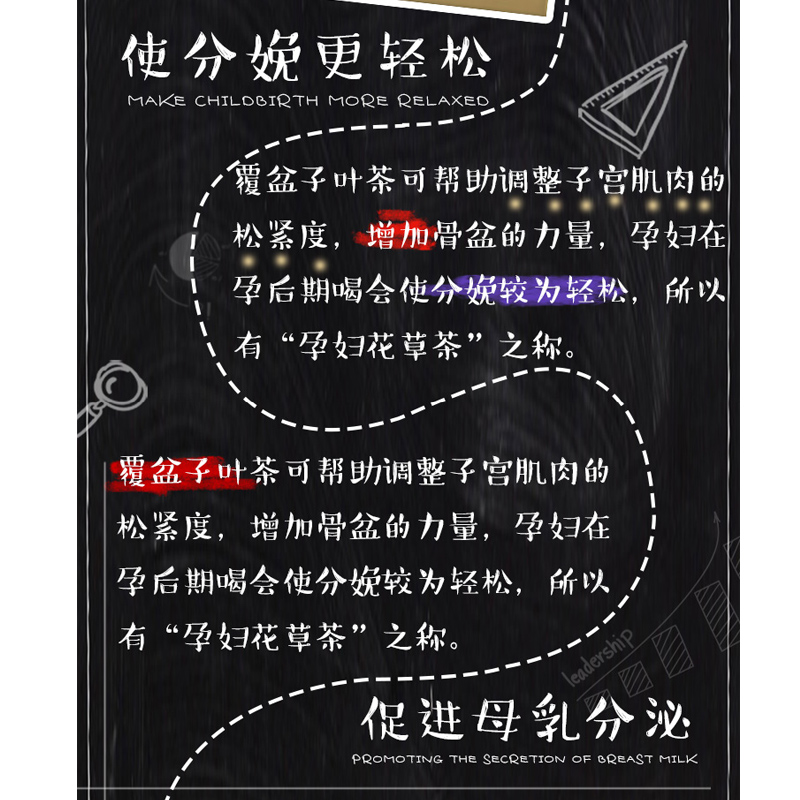 使分娩更轻松
MAKE CHILDBIRTH MORE RELAXED
覆盆子叶茶可帮助调整子宫肌肉的
松紧度，增加骨盆的力量，孕妇在
孕后期喝会使分娩较为轻松，所以
有“孕妇花草茶”之称。
覆盆子叶茶可帮助调整子宫肌肉的
松紧度，增加骨盆的力量，孕妇在
孕后期喝会使分娩较为轻松，所以
有“孕妇花草茶”之称。
leadership
促进母乳分泌
PROMOTING THE SECRETION OF BREAST MILK